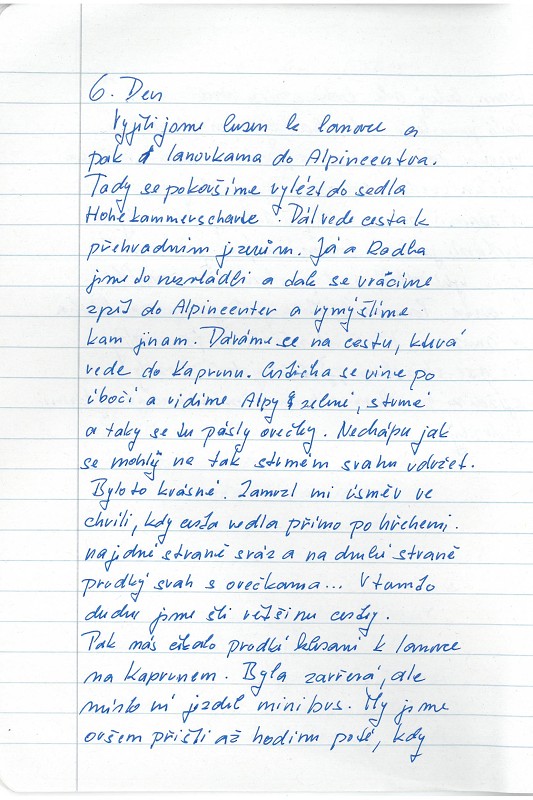 6. Den
Vyjeli jsme busem k lanovce a
pak lanovkama do Alpincentra.
Tady se pokoušíme vylézt do sedla
Hohe kammerscharte. Dál vede cesta k
přehradním jezerům. Já a Radka
jsme to nezvládli a tak se vracíme
zpět do Alpincenter a vymýšlíme
kam jinam. Dáváme se na cestu, která
vede do Kaprunu. Cestička se vine po
úbočí a vidíme Alpy zelené, strmé
a taky se tu pásly ovečky. Nechápu jak
se mohly na tak strmém svahu udržet.
Bylo to krásné. Zamrzl mi úsměv ve
chvíli, kdy cesta vedla přímo po hřebeni.
na jedné straně sráz a na druhé straně
prudký svah s ovečkama... V tomto
duchu jsme šli většinu cesty.
Pak nás čekalo prudké klesání k lanovce
na Kaprunem. Byla zavřená, ale
místo ní jezdil minibus. My jsme
ovšem přišli až hodinu poté, kdy